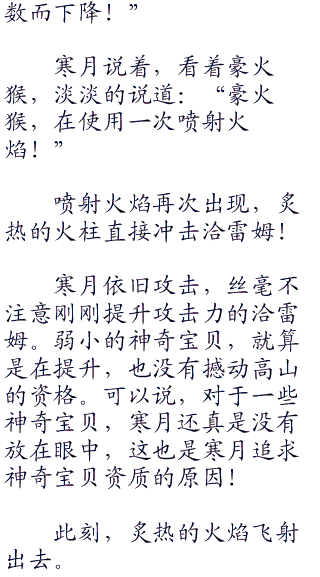 数而下降！”
寒月说着，看着豪火
猴，淡淡的说道：“豪火
猴，在使用一次喷射火
焰！”
喷射火焰再次出现，炙
热的火柱直接冲击洽雷姆！
寒月依旧攻击，丝毫不
注意刚刚提升攻击力的洽雷
姆。弱小的神奇宝贝，就算
是在提升，也没有撼动高山
的资格。可以说，对于一些
神奇宝贝，寒月还真是没有
放在眼中，这也是寒月追求
神奇宝贝资质的原因！
此刻，炙热的火焰飞射
出去。